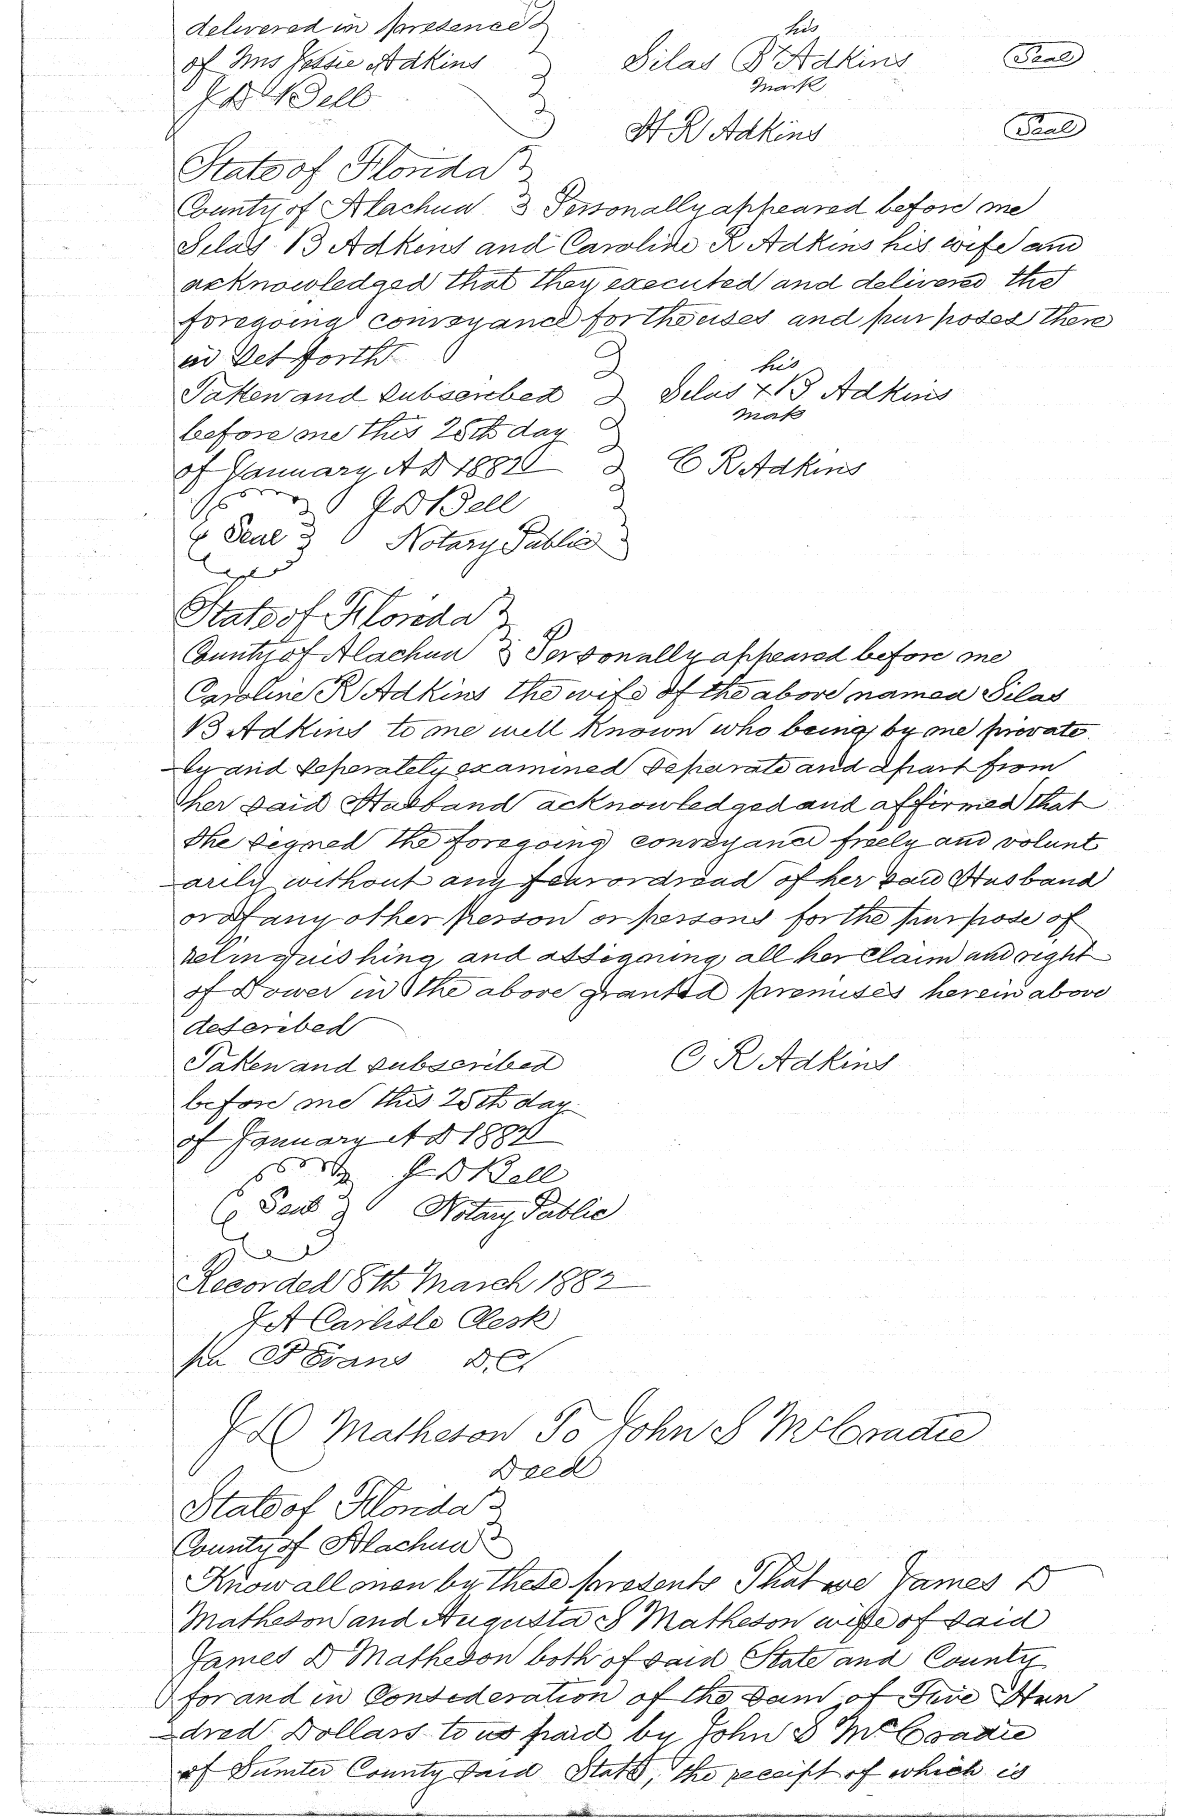 delivered in presence
of Mrs Jessie Adkins
his
Silas B Adkins Seal
mark
J D Bell
H R Adkins Seal
State of Florida
County of Alachua Personally appeared before me
Silas B Adkins and Caroline R Adkins his wife and
acknowledged that they executed and delivered the
foregoing conveyance for the uses and purposes there
in Set forth
his
Taken and subscribed Silas x B Adkins
mark
before me this 25th day
of January A D 1882 C R Adkins
J D Bell
Seal Notary Public
State of Florida
County of Alachua Personally appeared before me
Caroline R Adkins the wife of the above named Silas
B Adkins to me well Known who being by me private
ly and seperately examined separate and apart from
her said Husband acknowledged and affirmed that
She signed the foregoing conveyance freely and volunt
arily without any fear or dread of her said Husband
or of any other Person or persons for the purpose of
relinquishing and assigning all her Claim and right
of Dower in the above granted premises herein above
described
Taken and subscribed C R Adkins
before me this 25th day
of January A D 1882
J D Bell
Seal Notary Public
Recorded 8th March 1882
J A Carlisle Clerk
per P Evans D.C.
J D Matheson To John S McCradie
Deed
State of Florida
County of Alachua
Know all men by these presents That we James D
Matheson and Augusta S Matheson wife of said
James D Matheson both of said State and County
for and in Consideration of the sum of Five Hun
dred Dollars to us paid by John S McCradie
of Sumter County said State, the receipt of which is